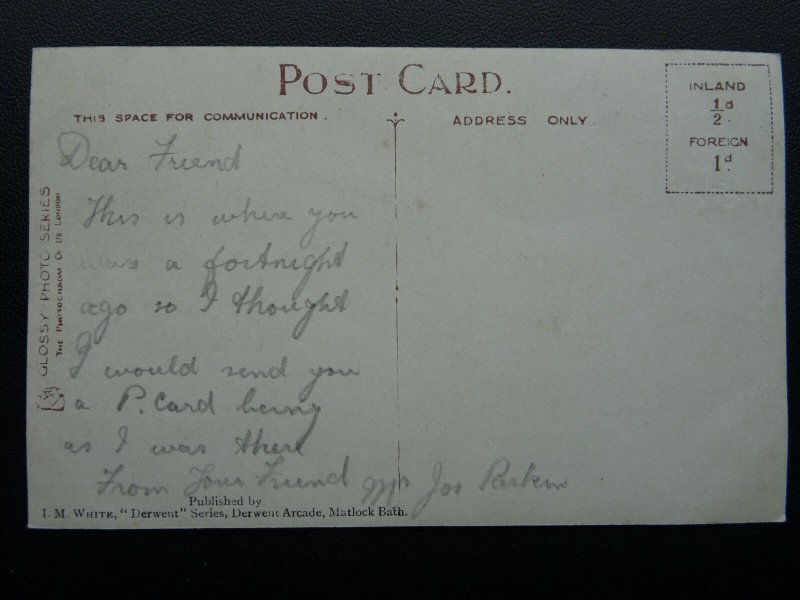 POST CARD.
THIS SPACE FOR COMMUNICATION.
ADDRESS ONLY.
INLAND
½d
FOREIGN
1d.
GLOSSY PHOTO SERIES
THE PHOTOCHROM Co LTD LONDON
Dear Friend
This is where you
was a fortnight
ago so I thought
I would send you
a P. Card being
as I was there
From Your Friend Mr Jos Parkin
Published by
I. M. WHITE, "Derwent" Series, Derwent Arcade, Matlock Bath.